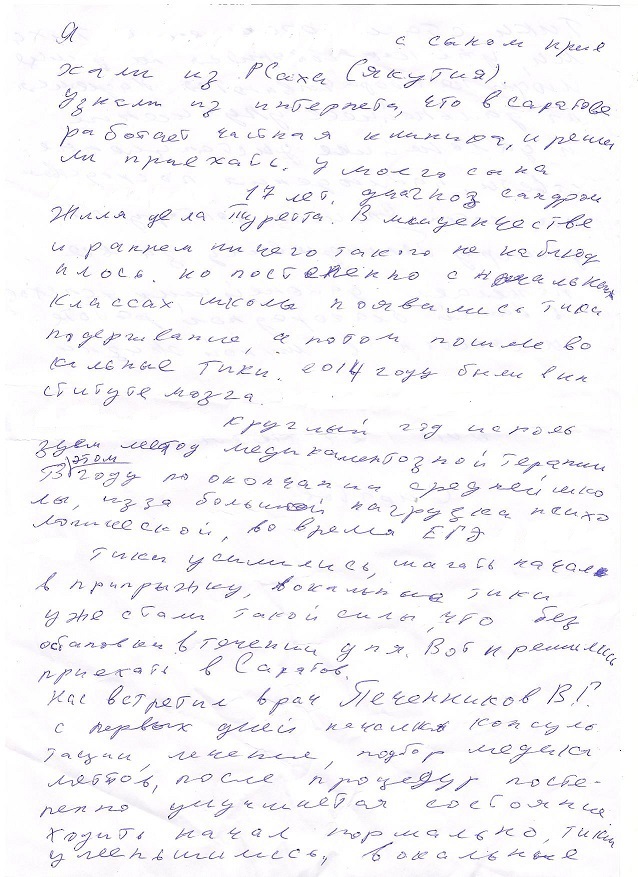 Я с сыном прие
хали из Р(Саха (Якутия).
Узнали из интернета, что в Саратове
работает частная клиника, и реши
ли приехать. У моего сына
17 лет, диагноз синдром
Жиля де ла Туретта. В младенчестве
и раннем ничего такого не наблюд
лось. но постепенно с начальных
классах школы появались тики
подергивание, а потом пошли во
кальные тики. 2014 году были в ин
ституте мозга.
Круглый год исполь
зуем метод медикаментозной терапии
В этом году по окончании средней шко
лы, из за большой нагрузки психо
логической, во время ЕГЭ
Тики усилились, шагать начал
в припрыжку, вокальные тики
уже стали такой силы, что без
остановки в течении дня. Вот и решились
приехать в Саратов.
Нас встретил врач Печенников В.Г.
с первых дней начался консуль
тации, лечение, подбор медика
ментов, после процедур посте-
пенно улучшается состояние
ходить начал нормально, тики
уменьшились, вокальные